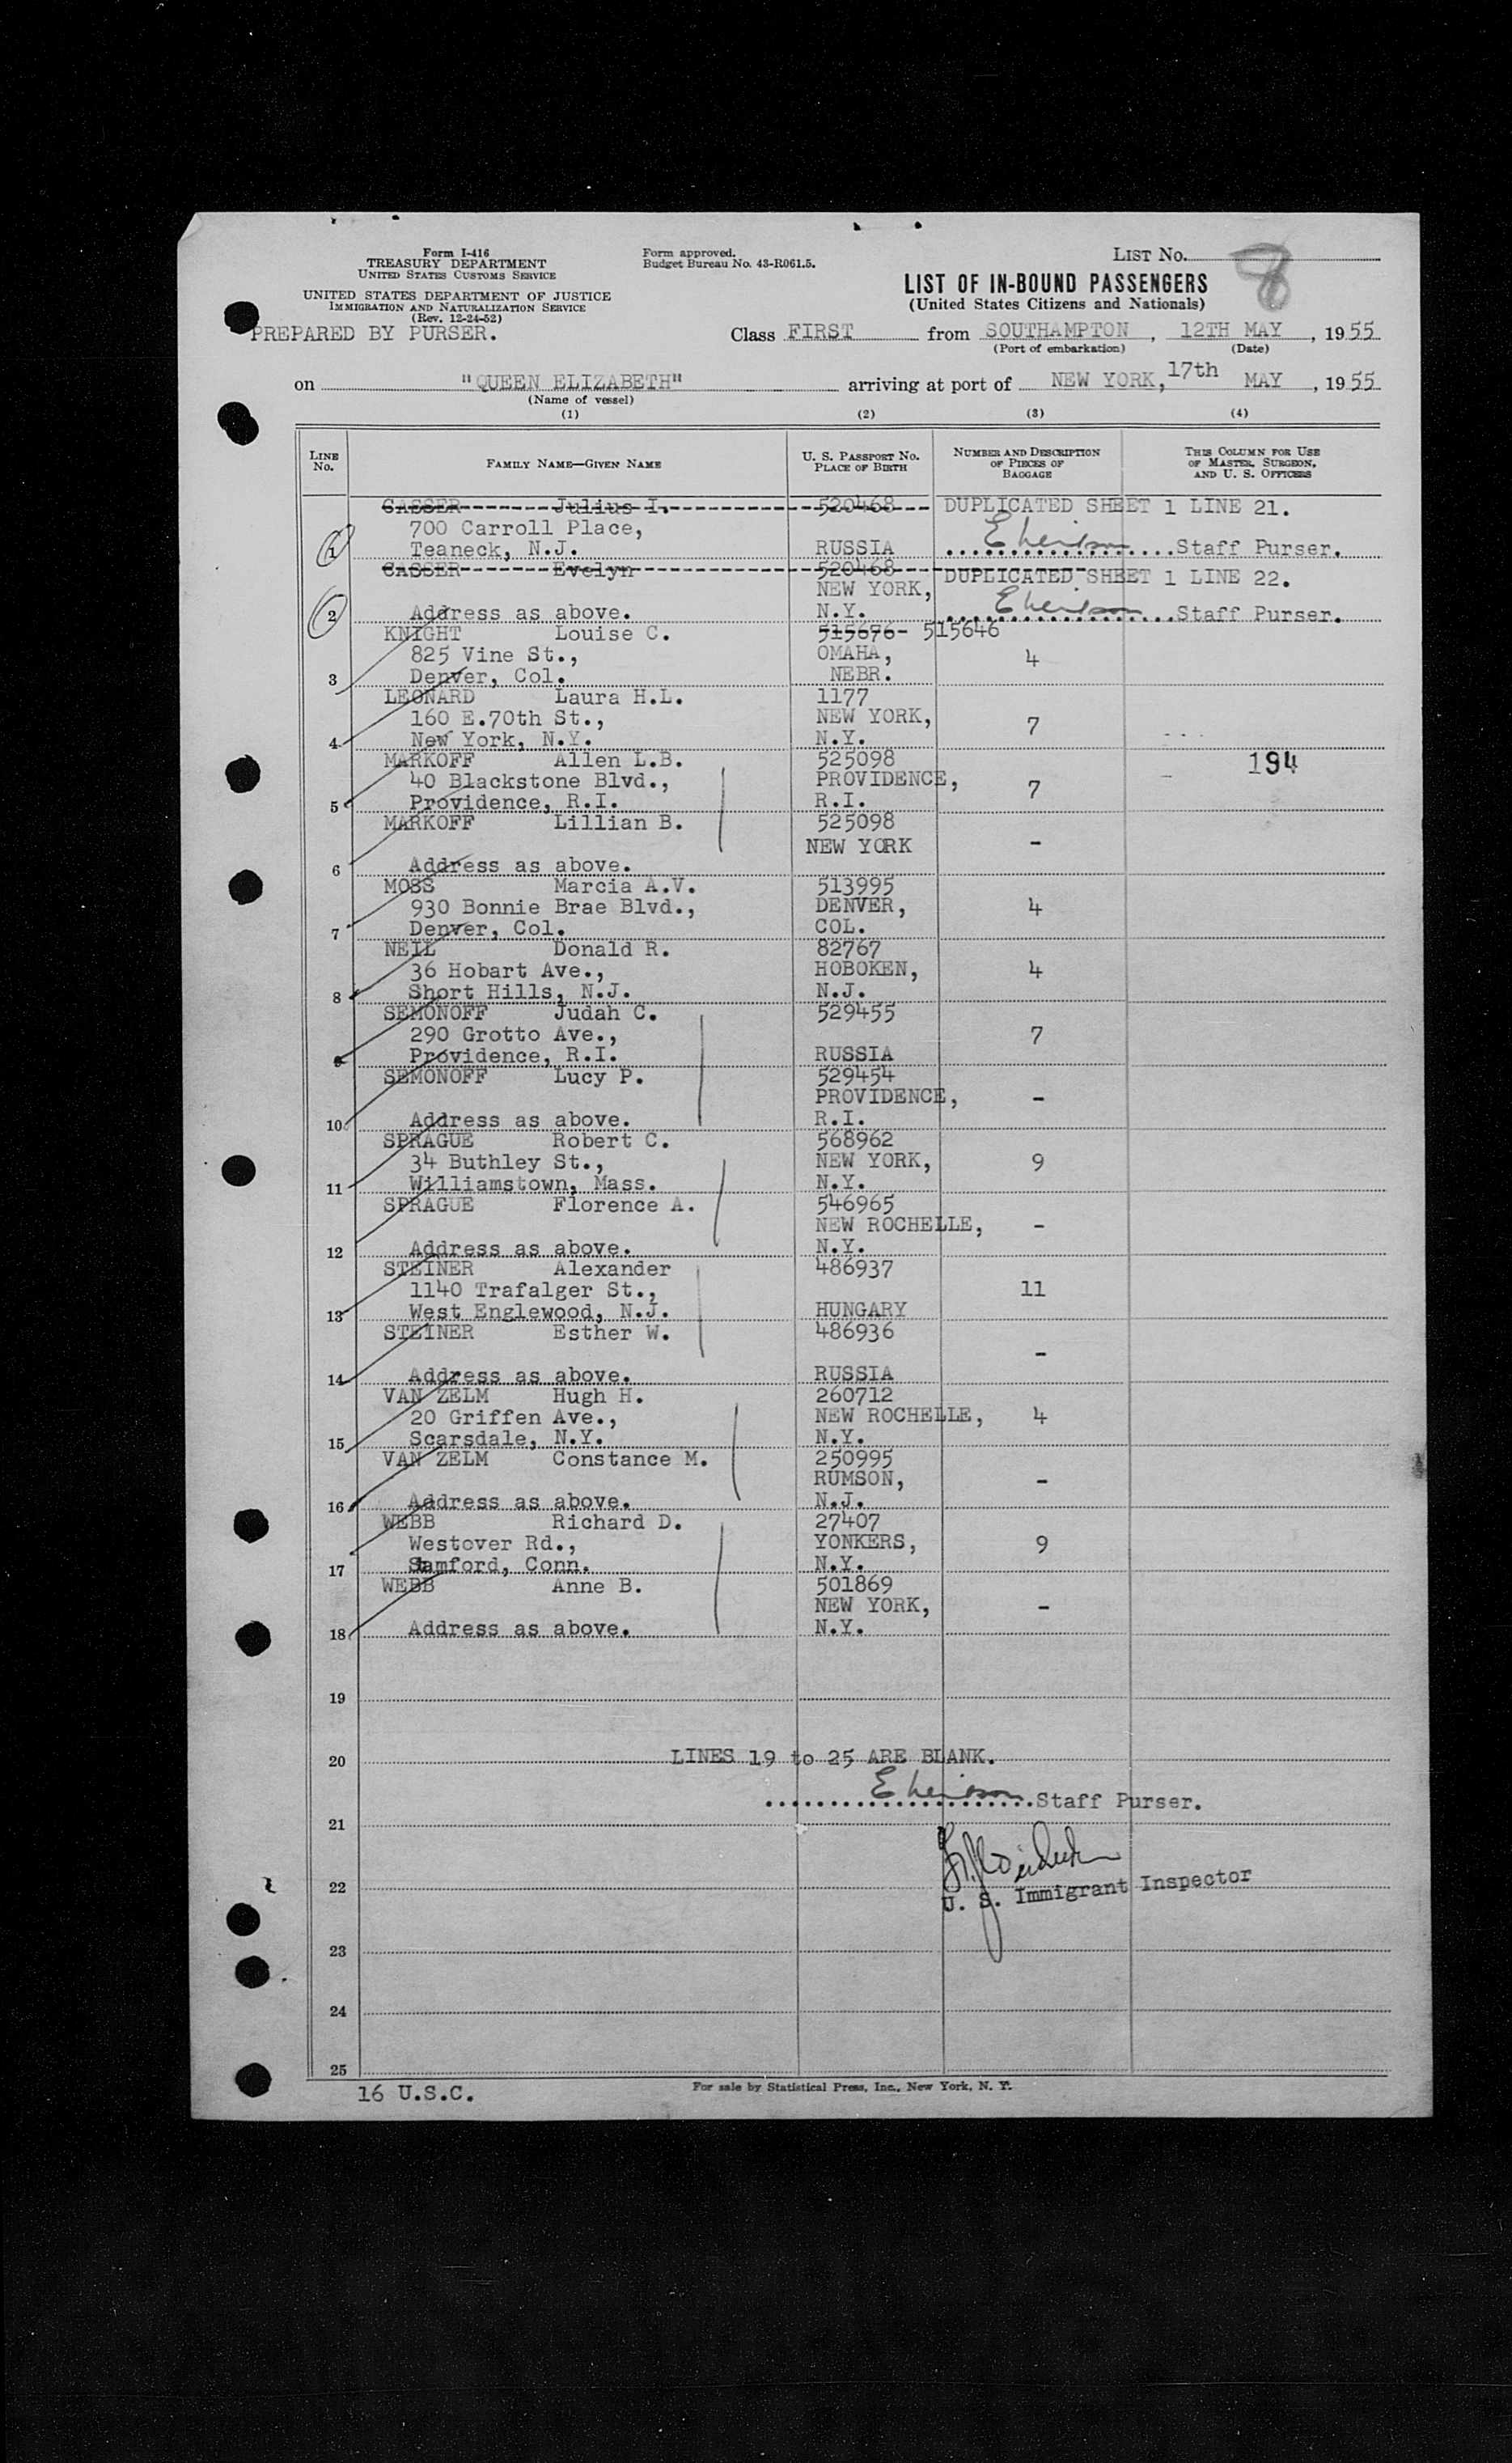 Form I-416
TREASURY DEPARTMENT
UNITED STATES CUSTOMS SERVICE
UNITED STATES DEPARTMENT OF JUSTICE
IMMIGRATION AND NATURALIZATION SERVICE
(Rev. 12-24-52)
PREPARED BY PURSER.
Form approved.
Budget Bureau No. 43-R061.5.
LIST No. 8
LIST OF IN-BOUND PASSENGERS
(United States Citizens and Nationals)
Class FIRST from SOUTHAMPTON, 12TH MAY, 1955
(Port of embarkation) (Date)
on "QUEEN ELIZABETH" arriving at port of NEW YORK, 17th MAY, 1955
(Name of vessel)
(1) (2) (3) (4)
LINE No. FAMILY NAME—GIVEN NAME U. S. PASSPORT No. PLACE OF BIRTH NUMBER AND DESCRIPTION OF PIECES OF BAGGAGE THIS COLUMN FOR USE OF MASTER, SURGEON, AND U. S. OFFICERS
Julius I. 520468 DUPLICATED SHEET 1 LINE 21.
700 Carroll Place,
1 Teaneck, N.J. RUSSIA Staff Purser.
Evelyn 520468 DUPLICATED SHEET 1 LINE 22.
NEW YORK,
2 Address as above. N.Y. Staff Purser.
KNIGHT Louise C. 515676- 515646
825 Vine St., OMAHA, 4
3 Denver, Col. NEBR.
LEONARD Laura H.L. 1177
160 E.70th St., NEW YORK, 7
4 New York, N.Y. N.Y.
MARKOFF Allen L.B. 525098 194
40 Blackstone Blvd., PROVIDENCE, 7
5 Providence, R.I. R.I.
MARKOFF Lillian B. 525098
NEW YORK -
6 Address as above.
MOSS Marcia A.V. 513995
930 Bonnie Brae Blvd., DENVER, 4
7 Denver, Col. COL.
NEIL Donald R. 82767
36 Hobart Ave., HOBOKEN, 4
8 Short Hills, N.J. N.J.
SEMONOFF Judah C. 529455
290 Grotto Ave., 7
9 Providence, R.I. RUSSIA
SEMONOFF Lucy P. 529454
PROVIDENCE, -
10 Address as above. R.I.
SPRAGUE Robert C. 568962
34 Buthley St., NEW YORK, 9
11 Williamstown, Mass. N.Y.
SPRAGUE Florence A. 546965
NEW ROCHELLE, -
12 Address as above. N.Y.
STEINER Alexander 486937
1140 Trafalger St., 11
13 West Englewood, N.J. HUNGARY
STEINER Esther W. 486936
-
14 Address as above. RUSSIA
VAN ZELM Hugh H. 260712
20 Griffen Ave., NEW ROCHELLE, 4
15 Scarsdale, N.Y. N.Y.
VAN ZELM Constance M. 250995
RUMSON, -
16 Address as above. N.J.
WEBB Richard D. 27407
Westover Rd., YONKERS, 9
17 Samford, Conn. N.Y.
WEBB Anne B. 501869
NEW YORK, -
18 Address as above. N.Y.
19
20 LINES 19 to 25 ARE BLANK.
Staff Purser.
21
22 U. S. Immigrant Inspector
23
24
25
16 U.S.C.
For sale by Statistical Press, Inc., New York, N. Y.